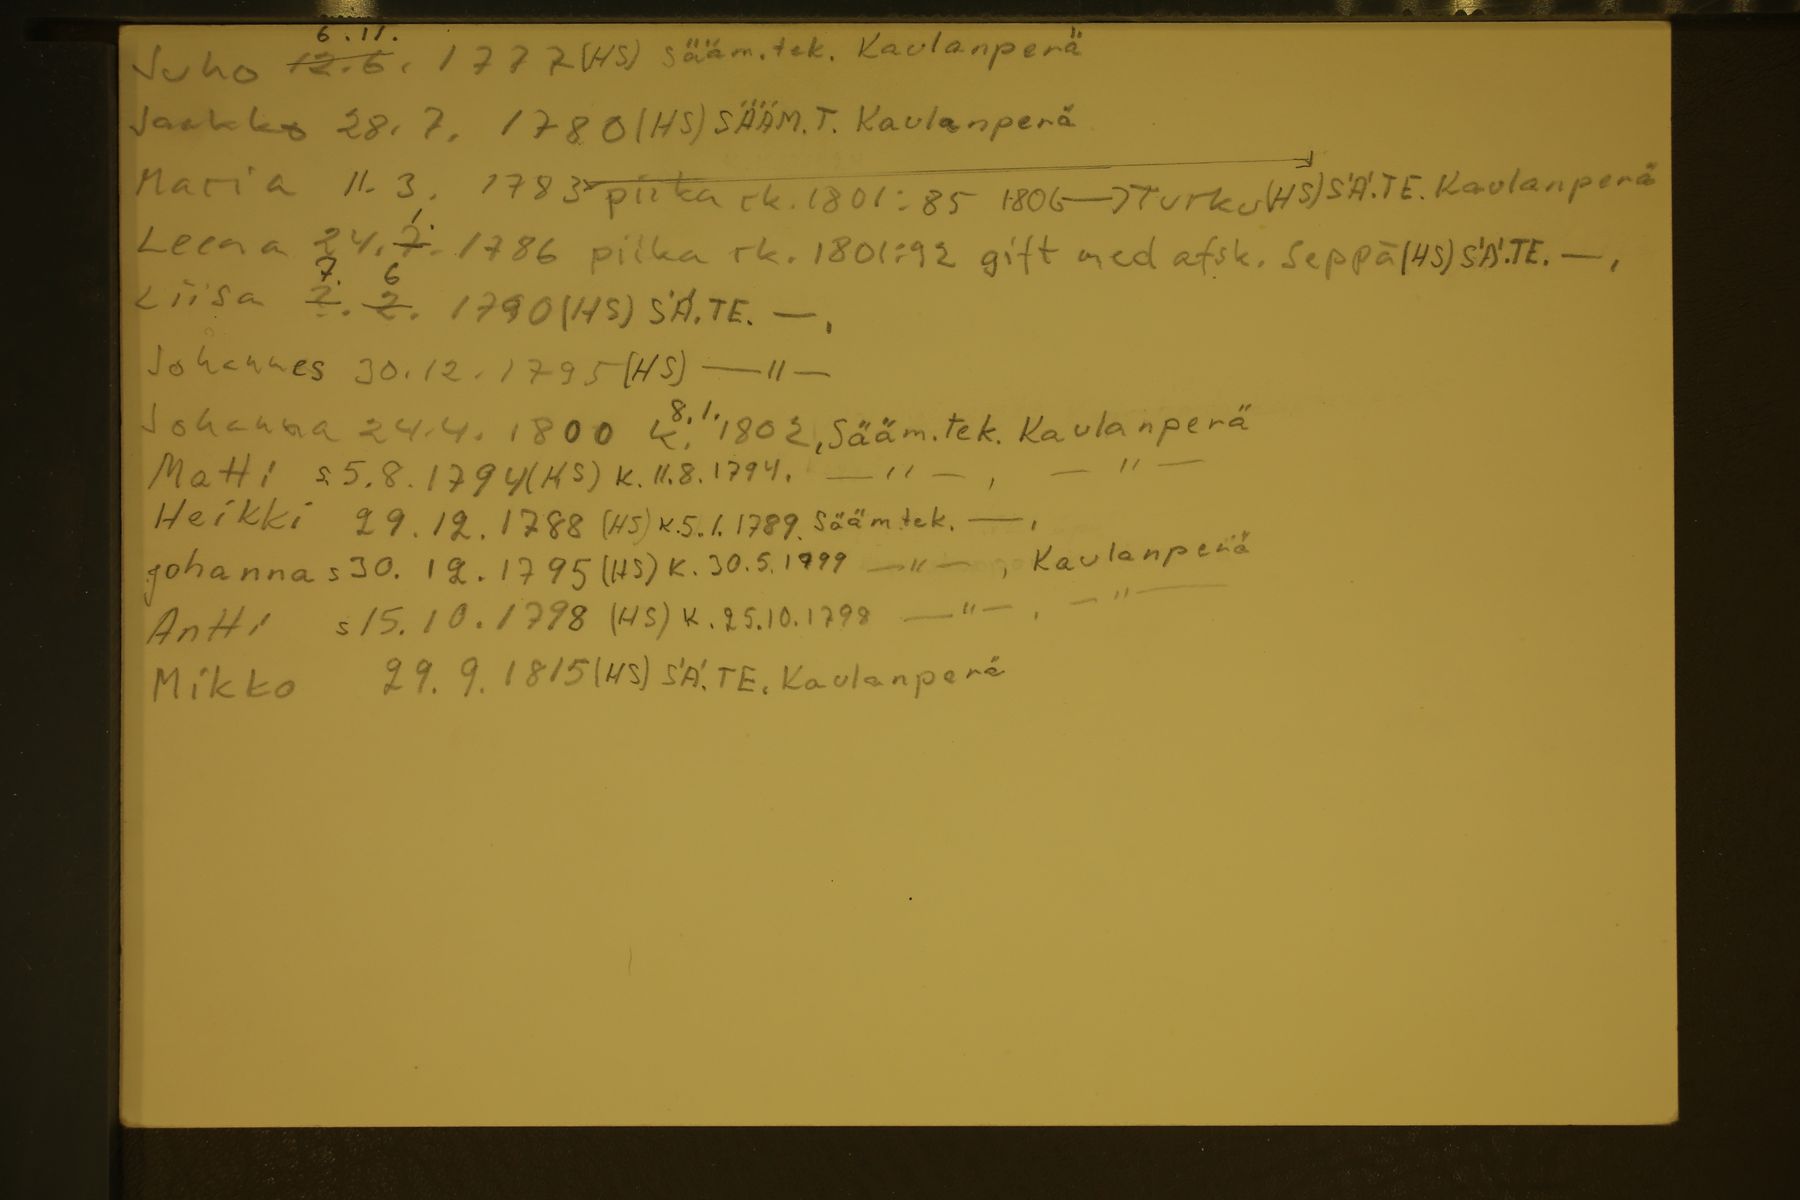 Juho 12.6. 6.11. 1777 (HS) Sääm.tek. Kaulanperä
Jaakko 28.7. 1780 (HS) SÄÄM.T. Kaulanperä
Maria 11.3. 1783 piika rk. 1801:85 1806 → Turku (HS) SÄ.TE. Kaulanperä
Leena 24.7. 1. 1786 piika rk. 1801:92 gift med afsk. Seppä (HS) SÄ.TE. —,
Liisa 7. 6 1790 (HS) SÄ.TE. —,
Johannes 30.12.1795 (HS) —"—
Johanna 24.4.1800 k. 8.1. 1802, Sääm.tek. Kaulanperä
Matti s 5.8.1794 (HS) k. 11.8.1794. —"—, —"—
Heikki 29.12.1788 (HS) k.5.1.1789. Sääm.tek. —,
Johanna s 30.12.1795 (HS) k. 30.5.1799 —"—, Kaulanperä
Antti s 15.10.1798 (HS) k. 25.10.1798 —"—, —"—
Mikko 29.9.1815 (HS) SÄ.TE. Kaulanperä